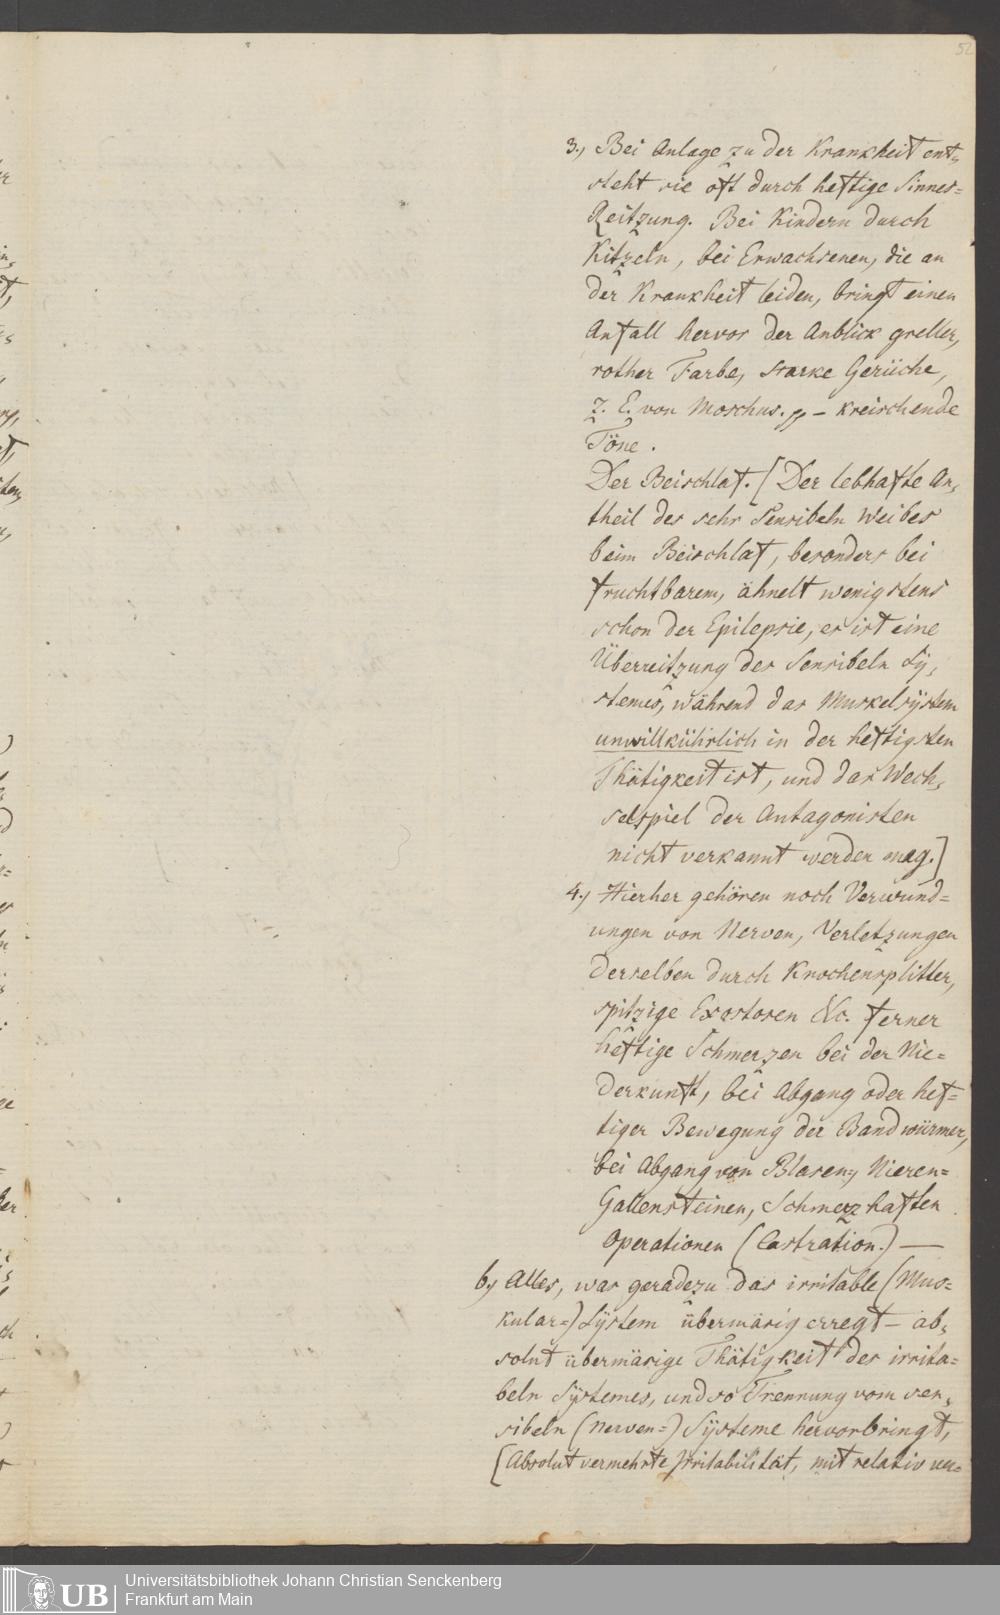 52
3., Bei Anlage zu der Krankheit ent-
steht sie oft durch heftige Sinnes=
Reitzung. Bei Kindern durch
Kitzeln, bei Erwachsenen, die an
der Krankheit leiden, bringt einen
Anfall hervor der Anblick greller,
rother Farbe, starke Gerüche,
z. E. von Moschus. – kreischende
Töne.
Der Beischlaf. [Der lebhafte An-
theil des sehr Sensibeln Weibes
beim Beischlaf, besonders bei
fruchtbarem, ähnelt wenigstens
schon der Epilepsie, es ist eine
Überreitzung des Sensibeln Sÿ-
stemes, während das Muskelsÿstem
unwillkührlich in der heftigsten
Thätigkeit ist, und das Wech-
selspiel der Antagonisten
nicht verkannt werden mag.]
4., Hierher gehören noch Verwund=
ungen von Nerven, Verletzungen
derselben durch Knochensplitter,
spitzige Exostosen &c. ferner
heftige Schmerzen bei der Nie=
derkunft, bei Abgang oder hef=
tiger Bewegung der Bandwürmer,
bei Abgang von Blasen=, Nieren=
Gallensteinen, Schmerzhaften
Operationen (Castration.) —
b., Alles, was geradezu das irritable (Mus=
kular=) Sÿstem übermäsig erregt – ab-
solut übermäsige Thätigkeit des irrita=
beln Sÿstemes, und so Trennung vom sen-
sibeln (Nerven=) Sÿsteme hervorbringt,
[Absolut vermehrte Irritabilität, mit relativ ver=
UB Universitätsbibliothek Johann Christian Senckenberg
Frankfurt am Main